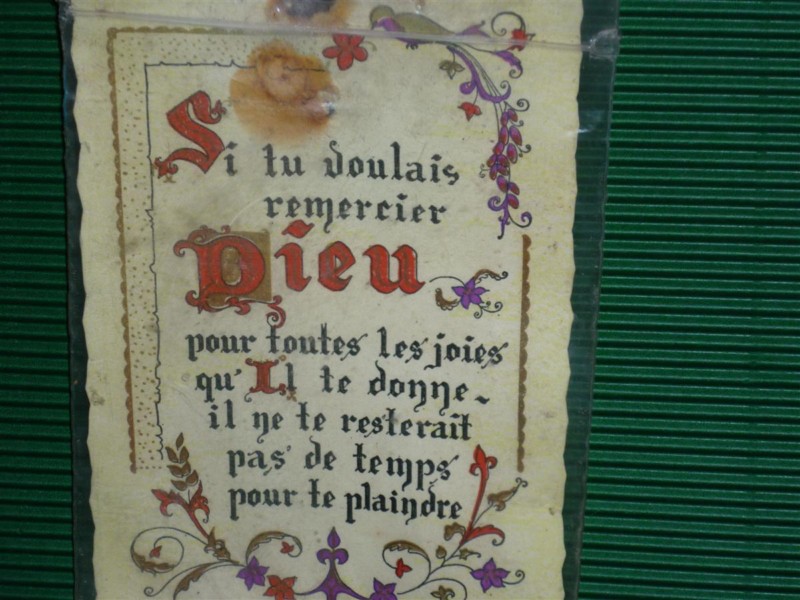 Si tu voulais
remercier
Dieu
pour toutes les joies
qu'Il te donne-
il ne te resterait
pas de temps
pour te plaindre